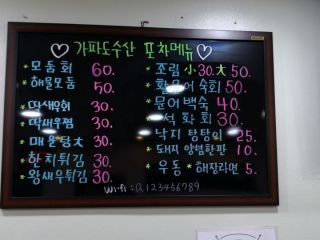 ♡ 가파도수산 포차메뉴 ♡
* 모둠회 60.
* 해물모둠 50.
* 딱새우회 30.
* 딱새우찜 30.
* 매운탕 大 30.
* 한치튀김 30.
* 왕새우튀김 30.
* 조림 小 30. 大 50.
숙회 50.
* 문어백숙 40.
화회 30.
낙지 탕탕이 25.
* 돼지 양념한판 10.
* 우동 * 해장라면 5.
Wi-fi : Q123456789